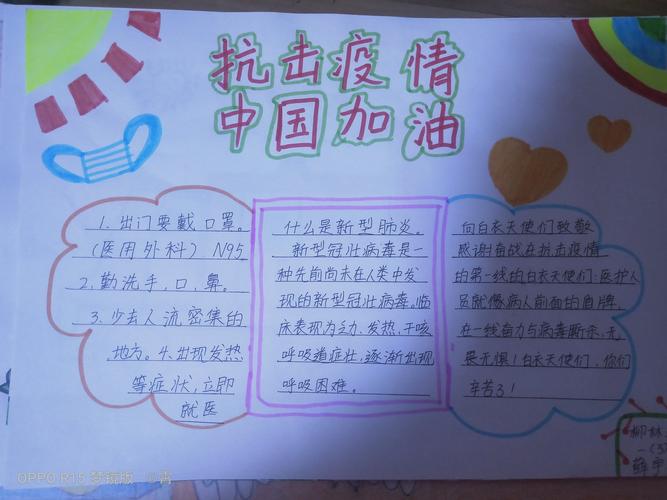 抗击疫情
中国加油
1. 出门要戴口罩。
(医用外科) N95
2. 勤洗手,口,鼻。
3. 少去人流密集的
地方。4. 出现发热
等症状,立即
就医
什么是新型肺炎。
新型冠壮病毒是一
种先前尚未在人类中发
现的新型冠壮病毒。临
床表现为乏力、发热,干咳
呼吸道症壮,逐渐出现
呼吸困难。
向白衣天使们致敬
感谢奋战在抗击疫情
的第一线的白衣天使们:医护人
员就像病人前面的盾牌,
在一线奋力与病毒厮杀,无
畏无惧!白衣天使们,你们
辛苦了!
柳林
OPPO R15 梦镜版